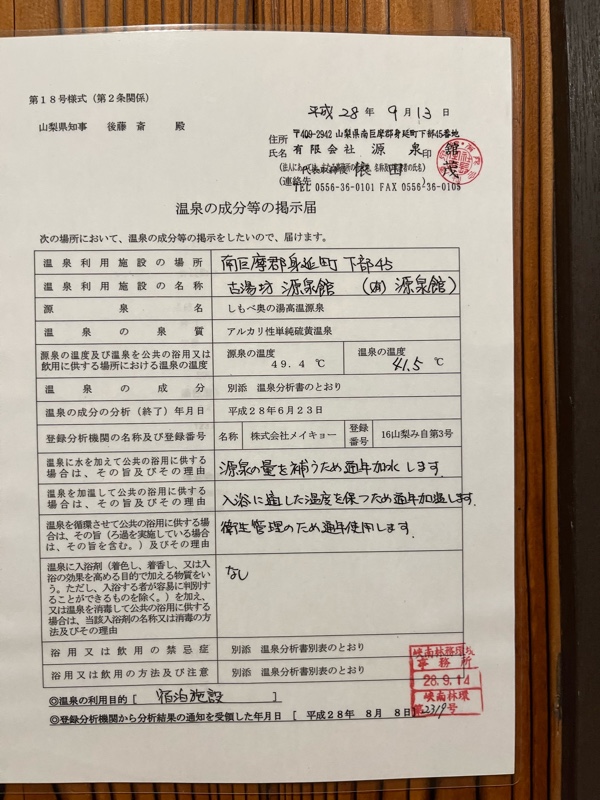 第18号様式（第2条関係）
平成 28 年 9 月 13 日
山梨県知事 後藤 斎 殿
住所 〒409-2942 山梨県南巨摩郡身延町下部45番地
氏名 有限会社 源泉館
代表取締役 依田 茂 印
(連絡先 TEL 0556-36-0101 FAX 0556-36-0103 )
温泉の成分等の掲示届
次の場所において、温泉の成分等の掲示をしたいので、届けます。
温泉利用施設の場所 南巨摩郡身延町下部45
温泉利用施設の名称 古湯坊 源泉館 (有) 源泉館)
源泉名 しもべ奥の湯高温源泉
温泉の泉質 アルカリ性単純硫黄温泉
源泉の温度及び温泉を公共の浴用又は
飲用に供する場所における温泉の温度
源泉の温度 49.4 ℃
温泉の温度 41.5 ℃
温泉の成分 別添 温泉分析書のとおり
温泉の成分の分析（終了）年月日 平成28年6月23日
登録分析機関の名称及び登録番号 名称 株式会社メイキョー 登録番号 16山梨み自第3号
温泉に水を加えて公共の浴用に供する
場合は、その旨及びその理由
源泉の量を補うため通年加水します。
温泉を加温して公共の浴用に供する
場合は、その旨及びその理由
入浴に適した温度を保つため通年加温します。
温泉を循環させて公共の浴用に供する場
合は、その旨（ろ過を実施している場合
は、その旨を含む。）及びその理由
衛生管理のため通年使用します。
温泉に入浴剤（着色し、着香し、又は入
浴の効果を高める目的で加える物質をい
う。ただし、入浴する者が容易に判別す
ることができるものを除く。）を加え、
又は温泉を消毒して公共の浴用に供する
場合は、当該入浴剤の名称又は消毒の方
法及びその理由
なし
浴用又は飲用の禁忌症 別添 温泉分析書別表のとおり
浴用又は飲用の方法及び注意 別添 温泉分析書別表のとおり
◎温泉の利用目的 [ 宿泊施設 ]
◎登録分析機関から分析結果の通知を受領した年月日 [ 平成28年 8月 8日 ]
峡南林務環境
事務所
28.9.14
峡南林環
第2319号